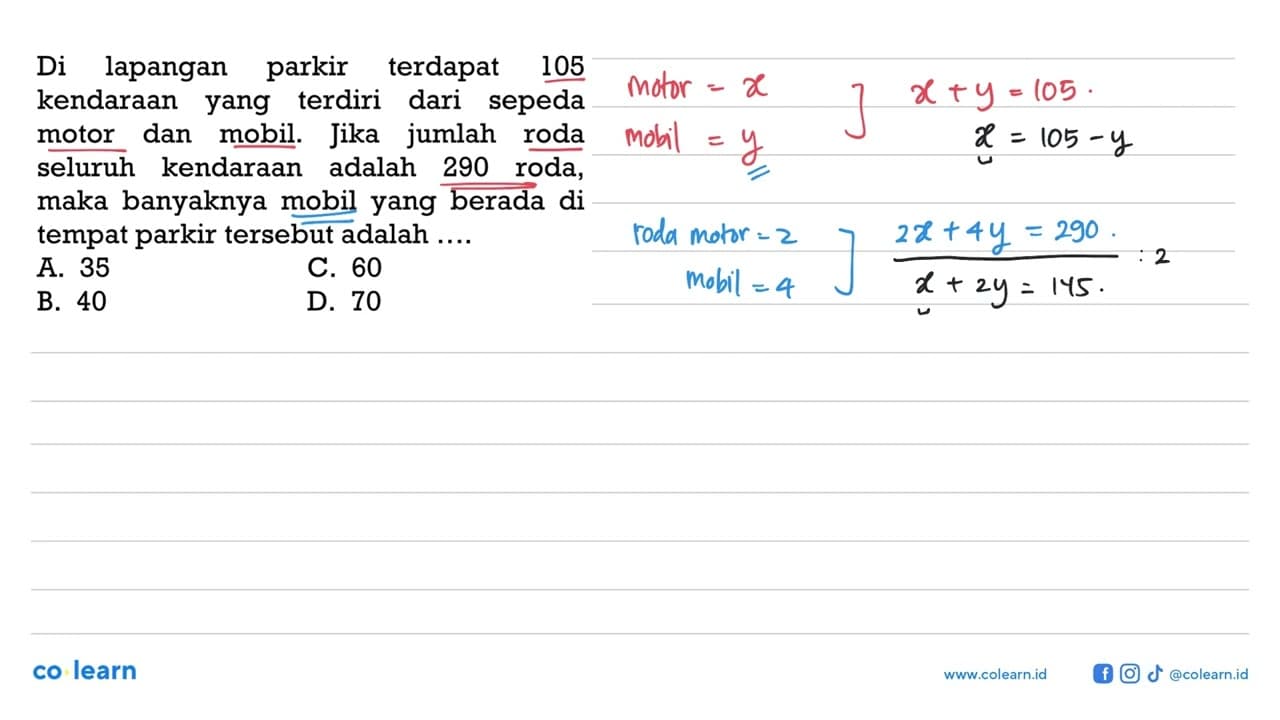 Di lapangan parkir terdapat 105
kendaraan yang terdiri dari sepeda
motor dan mobil. Jika jumlah roda
seluruh kendaraan adalah 290 roda,
maka banyaknya mobil yang berada di
tempat parkir tersebut adalah ....
A. 35 C. 60
B. 40 D. 70
motor = x
mobil = y
x + y = 105.
x = 105 - y
roda motor = 2
mobil = 4
2x + 4y = 290.
: 2
x + 2y = 145.
co learn
www.colearn.id
@colearn.id